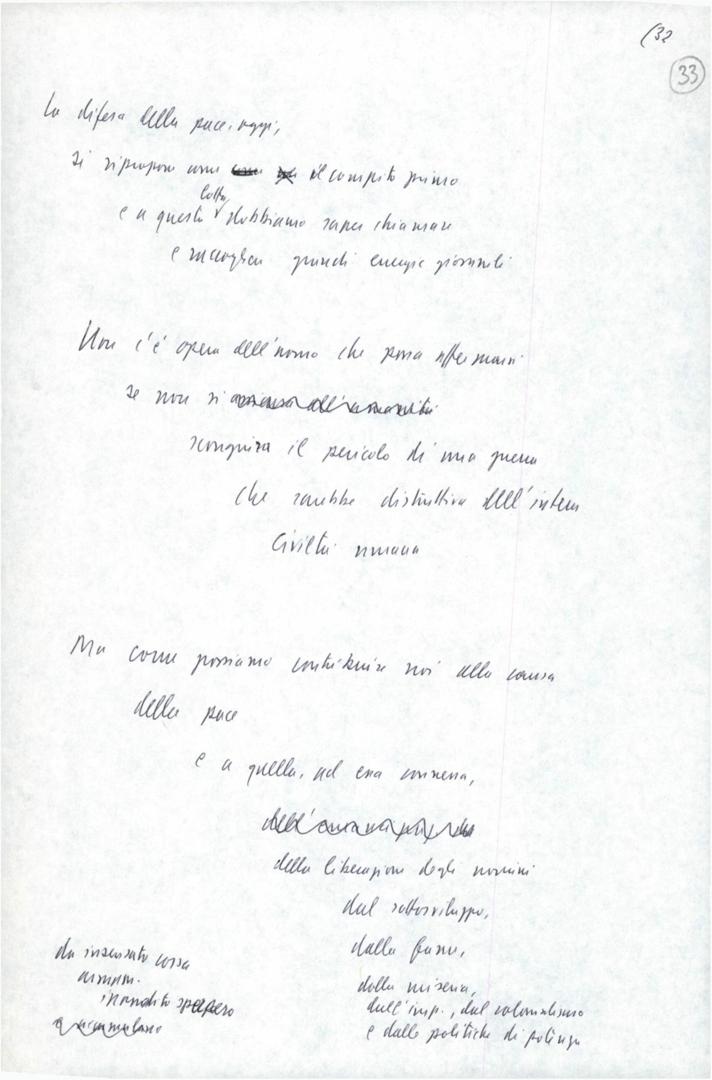 (32
33
La difesa della pace, oggi,
si ripropone come il compito primo
lotta
e a questa dobbiamo saper chiamare
e raccogliere grandi energie giovanili
Non c'è opera dell'uomo che possa affermarsi
se non si
scongiura il pericolo di una guerra
che sarebbe distruttiva dell'intera
civiltà umana
Ma come possiamo contribuire noi alla causa
della pace
e a quella, ad essa connessa,
della liberazione degli uomini
dal sottosviluppo,
dalla fame,
dalla miseria,
dall'imp., dal colonialismo
e dalle politiche di potenza
da insensata corsa
inaudito spèrpero